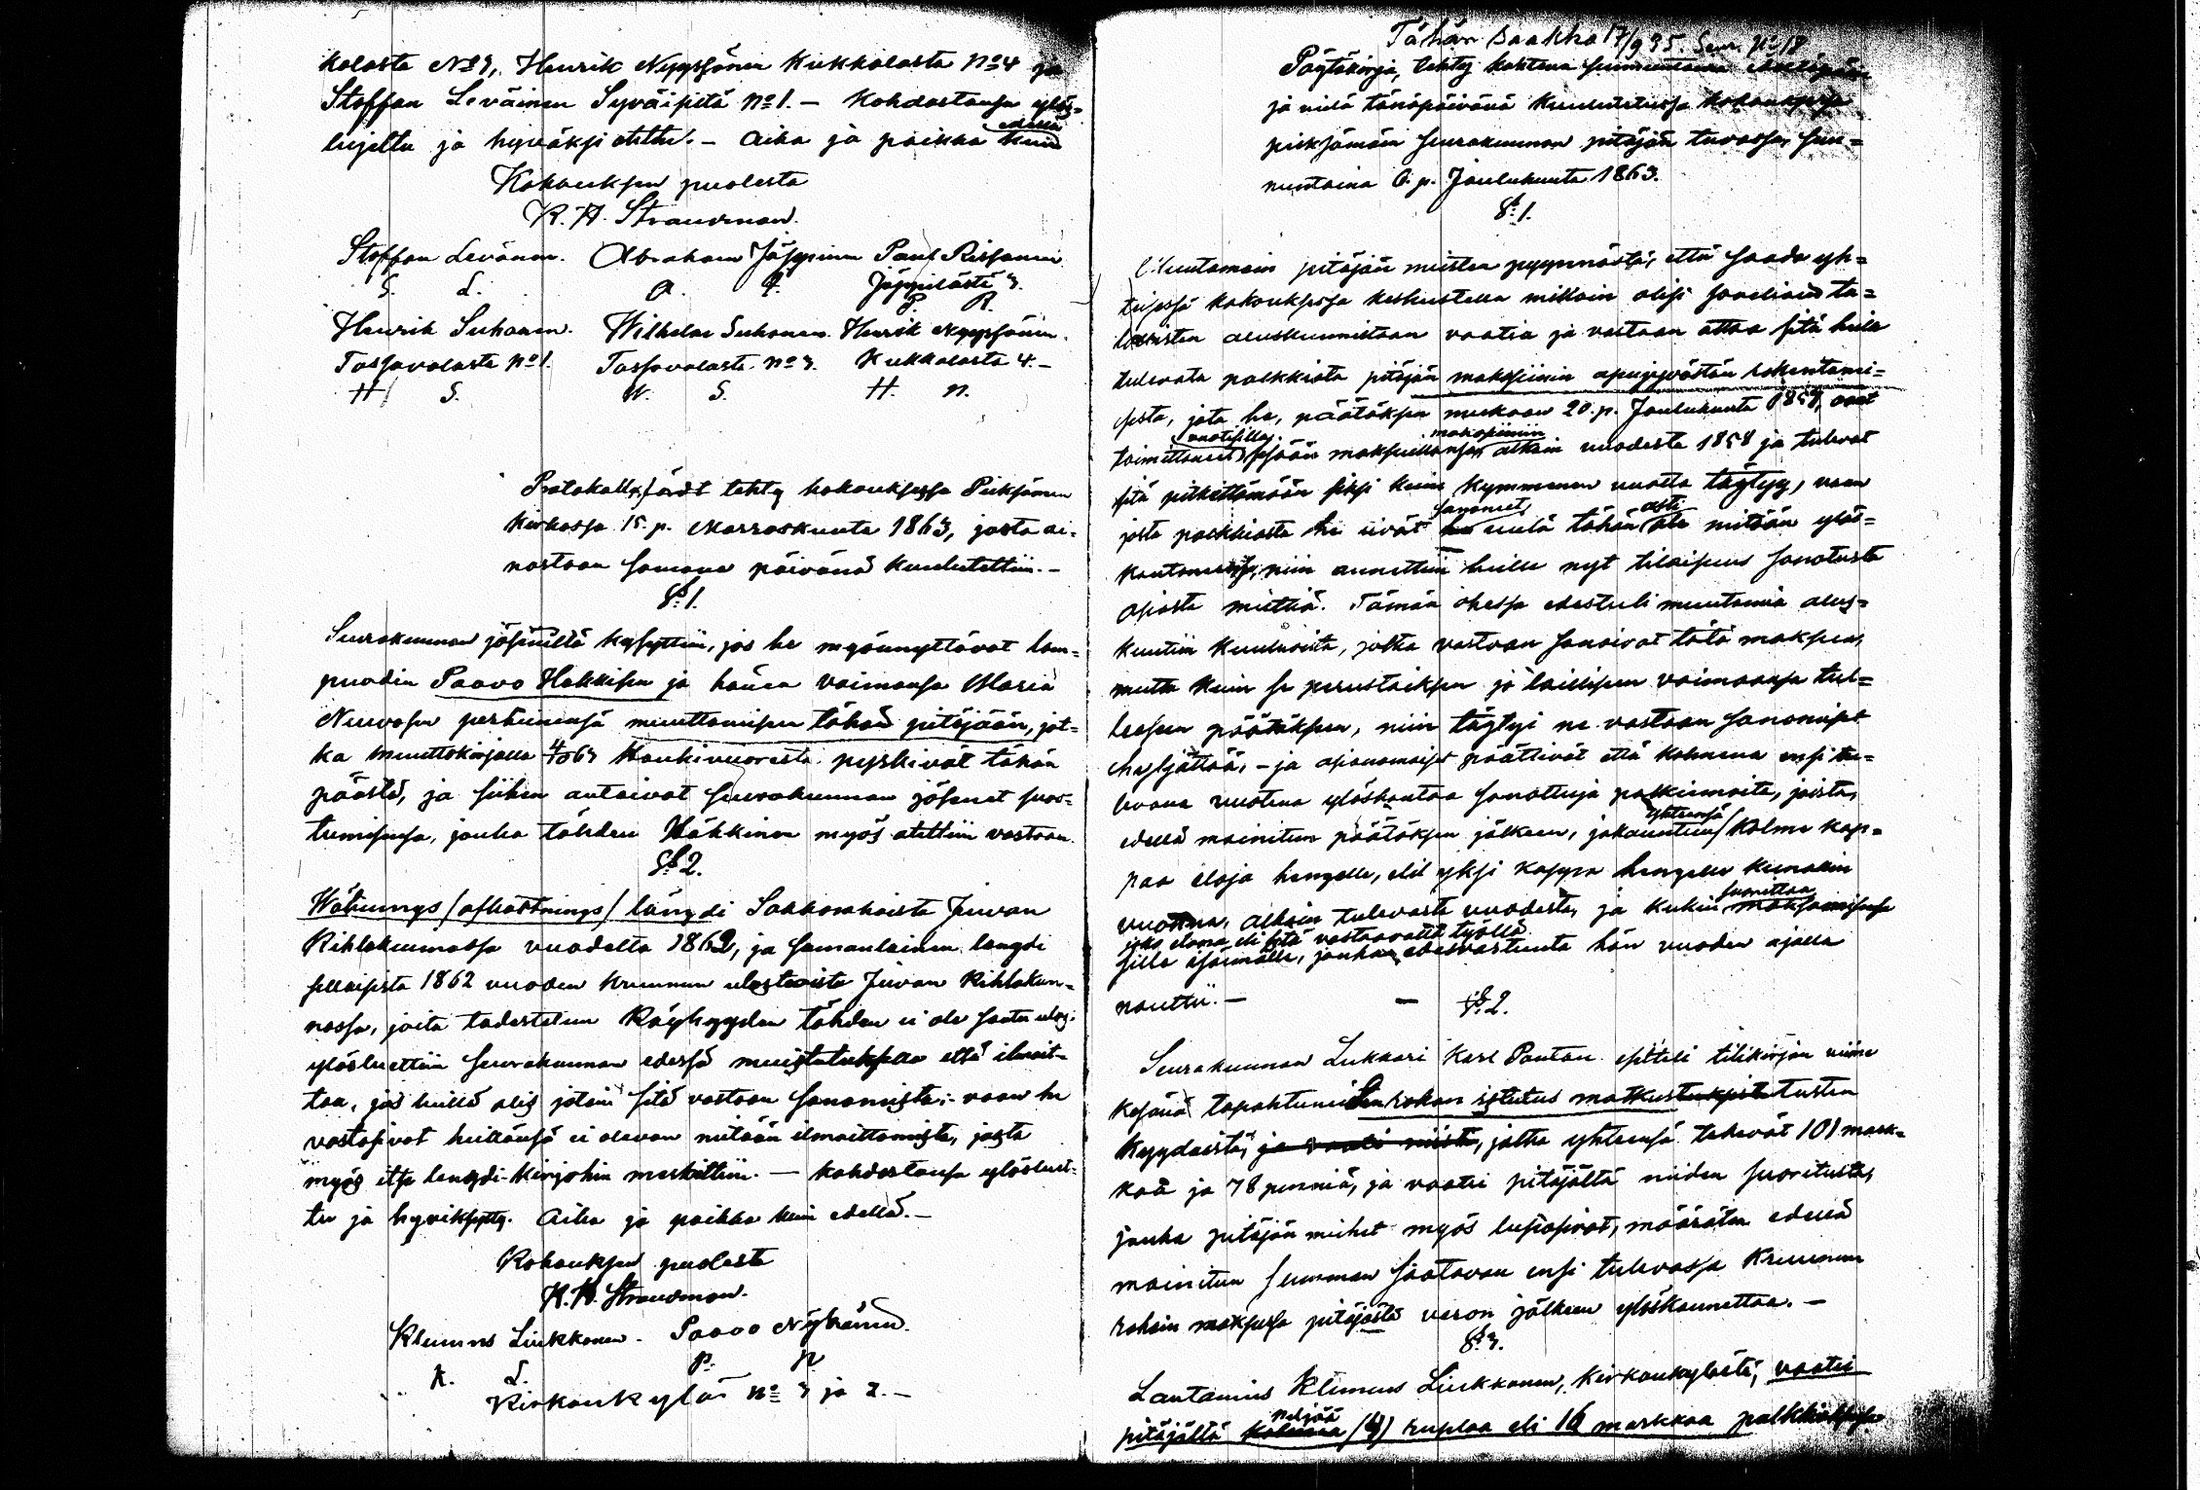 kalasta No 3, Henrik Nyyssönen Kukkalasta No 4 ja
Staffan Leväinen Syväisistä No 1. – Kohdastansa ylös=
lujettu ja hyväksi otettu. – Aika ja paikka kuin edellä
Kokouksen puolesta
K. H. Strandman.
Staffan Levänen. Abraham Jäppinen Paul Rissanen
S. L. A. J. Jäppilästä 3.
P. R.
Henrik Suhonen. Wilhelm Suhonen. Henrik Nyyssönen.
Tossavalasta No 1. Tossavalasta No 3. Kukkalasta 4. –
H S. W. S. H. N.
Protokollsfördt tehty kokouksessa Pieksämen
kirkossa 15. p. Marraskuuta 1863, josta ai=
nastaan samana päivänä kuulutettiin. –
§ 1.
Seurakunnan jäseniltä kysyttiin, jos he myönnyttävät lam=
puodin Paavo Hakkisen ja hänen vaimonsa Maria
Neuvosen perheinensä muuttamisen tähän pitäjään, jot=
ka muuttokirjalla 63 Haukivuoresta pyrkivät tähän
päästä, ja siihen antoivat seurakunnan jäsenet suos=
tumisensa, jonka tähden Häkkinen myös otettiin vastaan.
§ 2.
Afkortnings/längdi Sakkorahoista Juvan
Kihlakunnassa vuodelta 1862, ja samanlainen längdi
sellaisista 1862 vuoden kruunun ulosteoista Juvan Kihlakun=
nassa, joita todistetun köyhyyden tähden ei ole saatu ulos:
ylösluettiin seurakunnan edessä muistutuksella että ilmoit=
taa, jos heillä olis jotain sitä vastaan sanomista; – vaan he
vastasivat heillänsä ei olevan mitään ilmoittamista, josta
myös itse längdi-kirjohin merkittiin. – Kohdastansa ylösluet=
tu ja hyväksytty. Aika ja paikka kuin edellä. –
Kokouksen puolesta
K. H. Strandman.
Klemens Liukkonen. Paavo Nykänen.
K. L. P. N.
Kirkonkylästä No 3 ja 2. –
Tähän saakka 17/9 35. Seur. No 18
Pöytäkirja, tehty kahtena sunnuntaina edelläpäin
ja vielä tänäpäivänä kuulutetussa kokouksessa
pieksämäen seurakunnan pitäjän tuvassa, sun=
nuntaina 6. p. Joulukuuta 1863.
§ 1.
Muutamain pitäjän miesten pyynnöstä, että saada yh=
teisessä kokouksessa keskustella milloin olisi soveliain ta=
loisten aluskunniltaan vaatia ja vastaan ottaa sitä heille
tulevata palkkiota pitäjän makasiinin apujyvästön rakentami=
sesta, jota he, päätöksen mukaan 20. p. Joulukuuta 1857, ovat
toimittaneet vuotisilla jyvän maksuillansa makasiiniin alkain vuodesta 1858 ja tulevat
sitä pitkittämään siksi kuin kymmenen vuotta täytyy, vaan
josta palkkiosta he eivät sanoneet vielä tähän asti mitään ylös=
kantaneensa, niin annettiin heille nyt tilaisuus sanotusta
asiasta miettiä. Tämän ohessa edestuli muutamia alus=
kuntiin kuuluvia, jotka vastaan sanoivat tätä maksua,
mutta kuin se perustaiksen jo laillisen voimaansa tul=
leesen päätöksen, niin täytyi ne vastaan sanomiset
hyljättää, – ja asianomaiset päättivät että kolmena ensi tu=
levana vuotena ylöskantaa sanottuja palkkioita, joista,
edellä mainitun päätöksen jälkeen, jokaiselta yhteensä kolme kap=
paa eloja hengelle, eli yksi kappa hengelle kunakin
vuotena, alkain tulevasta vuodesta, ja kukin suorittaa maksamisensa
joko eloina eli sitä vastaavalla työllä
sille isännälle, jonka edesvastuuta hän vuoden ajalla
nauttii. – – § 2.
Seurakunnan Lukkari Karl Pontan esitteli tilikirjan viime
kesänä tapahtuneiden rokon istutus matkustuksista tusten
kyydeistä, ja vaati niistä, jotka yhteensä tekevät 101 mark=
kaa ja 78 penniä, ja vaati pitäjältä niiden suoritusta,
jonka pitäjän miehet myös lupasivat, määräten edellä
mainitun summan saatavan ensi tulevassa Kruunun
rahain maksussa pitäjästä veron jälkeen ylöskannettaa. –
§ 3.
Lautamies Klemens Liukkonen, Kirkonkylästä, vaati
pitäjältä kolmea neljää (4) ruplaa eli 16 markkaa palkkioksensa